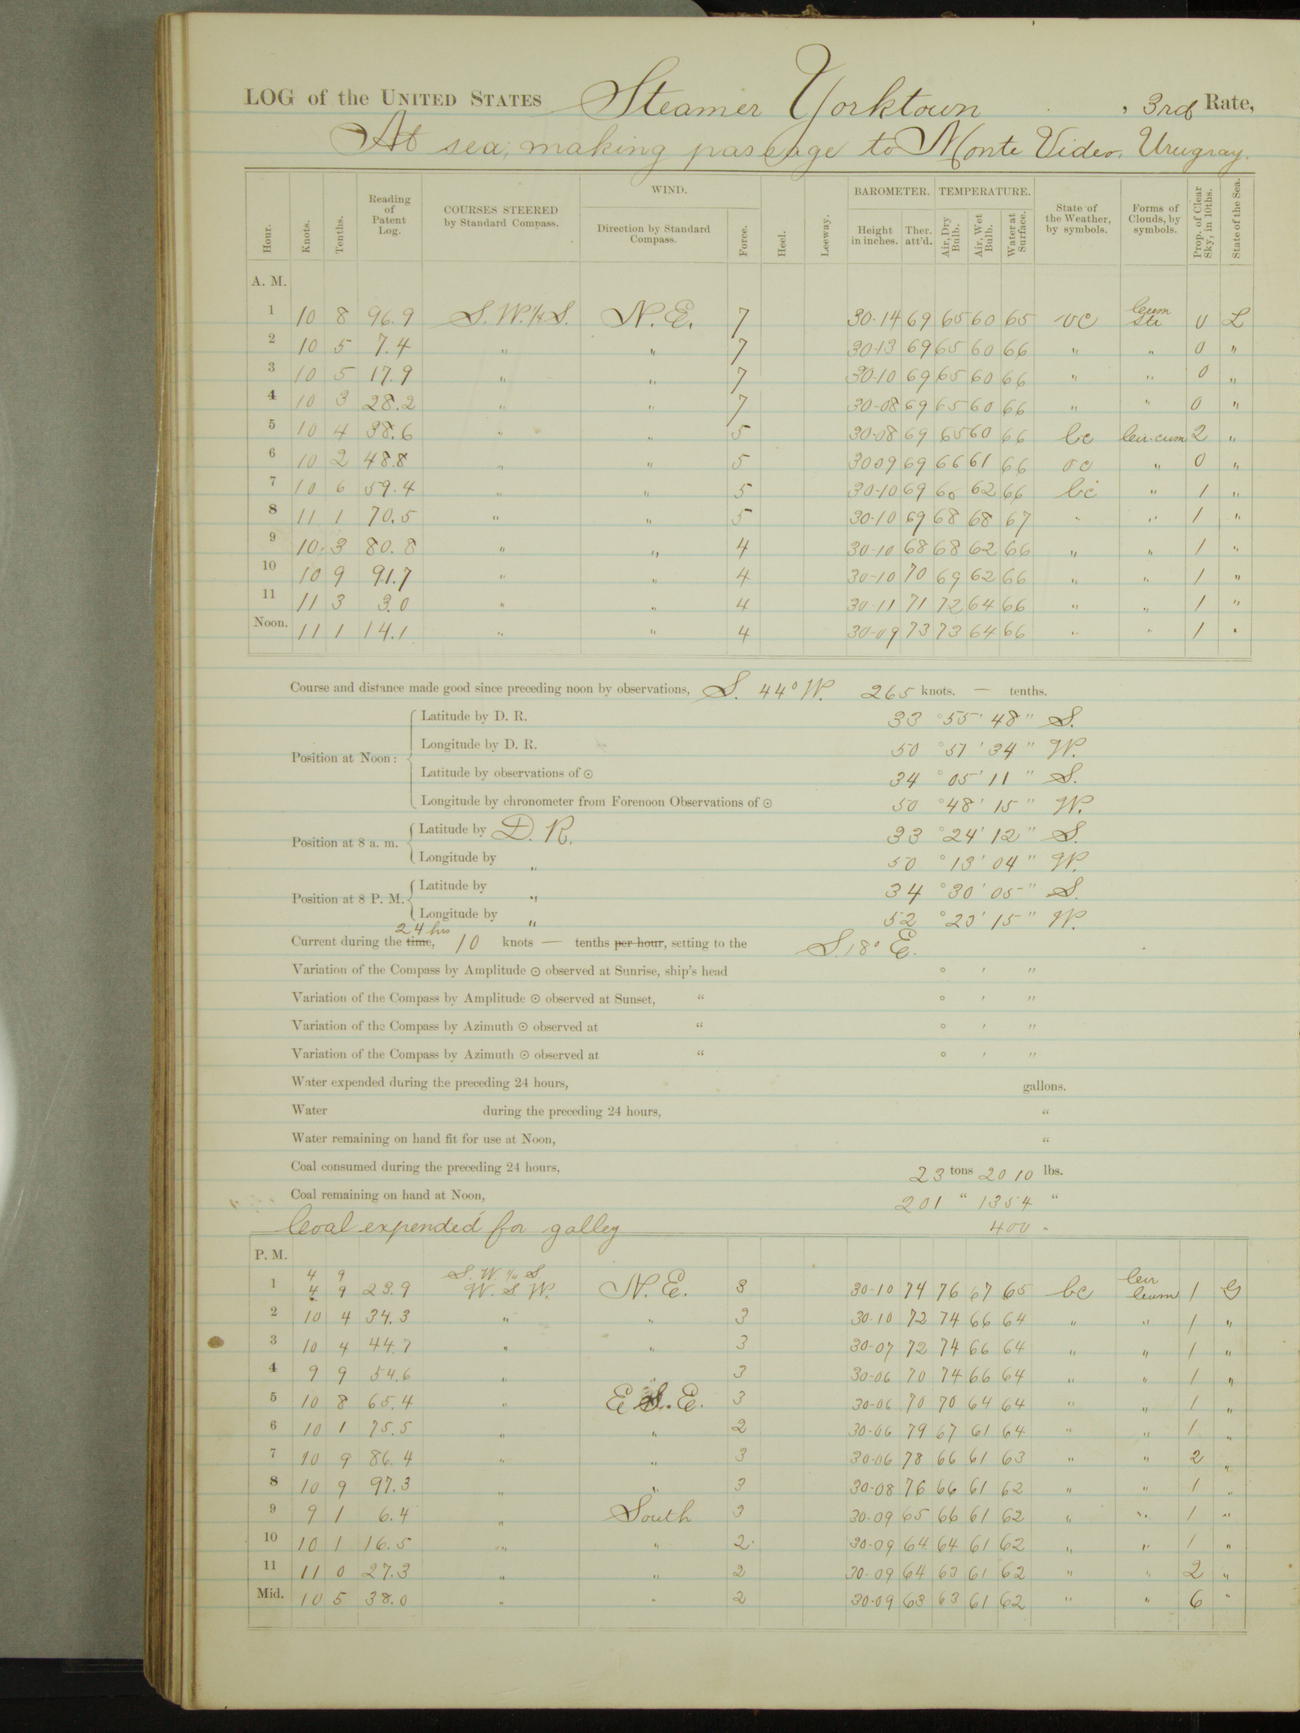 LOG of the UNITED STATES Steamer Yorktown , 3rd Rate,
At sea, making passage to Monte Video, Uruguay.
Hour. Knots. Tenths. Reading of Patent Log. COURSES STEERED by Standard Compass. WIND. Direction by Standard Compass. Force. Heel. Leeway. BAROMETER. Height in inches. Ther. att'd. TEMPERATURE. Air, Dry Bulb. Air, Wet Bulb. Water at Surface. State of the Weather, by symbols. Forms of Clouds, by symbols. Prop. of Clear Sky, in 10ths. State of the Sea.
A. M.
1 10 8 96.9 S.W. ½ S. N.E. 7 30-14 69 65 60 65 oc Cum Str 0 L
2 10 5 7.4 " " 7 30-13 69 65 60 66 " " 0 "
3 10 5 17.9 " " 7 30-10 69 65 60 66 " " 0 "
4 10 3 28.2 " " 7 30-08 69 65 60 66 " " 0 "
5 10 4 38.6 " " 5 30-08 69 65 60 66 bc Cir-cum 2 "
6 10 2 48.8 " " 5 30 09 69 66 61 66 oc " 0 "
7 10 6 59.4 " " 5 30-10 69 60 62 66 bc " 1 "
8 11 1 70.5 " " 5 30-10 69 68 68 67 " " 1 "
9 10 3 80.8 " " 4 30-10 68 68 62 66 " " 1 "
10 10 9 91.7 " " 4 30-10 70 69 62 66 " " 1 "
11 11 3 3.0 " " 4 30-11 71 72 64 66 " " 1 "
Noon. 11 1 14.1 " " 4 30-09 73 73 64 66 " " 1 "
Course and distance made good since preceding noon by observations, S. 44° W. 265 knots. — tenths.
Position at Noon: Latitude by D. R. 33 ° 55 ' 48 " S.
Longitude by D. R. 50 ° 51 ' 34 " W.
Latitude by observations of ☉ 34 ° 05 ' 11 " S.
Longitude by chronometer from Forenoon Observations of ☉ 50 ° 48 ' 15 " W.
Position at 8 a. m. Latitude by D. R. 33 ° 24 ' 12 " S.
Longitude by " 50 ° 13 ' 04 " W.
Position at 8 P. M. Latitude by " 34 ° 30 ' 05 " S.
Longitude by " 52 ° 23 ' 15 " W.
24 hrs
Current during the time, 10 knots — tenths per hour, setting to the S. 18° E.
Variation of the Compass by Amplitude ☉ observed at Sunrise, ship's head ° ' "
Variation of the Compass by Amplitude ☉ observed at Sunset, " ° ' "
Variation of the Compass by Azimuth ☉ observed at " ° ' "
Variation of the Compass by Azimuth ☉ observed at " ° ' "
Water expended during the preceding 24 hours, gallons.
Water during the preceding 24 hours, "
Water remaining on hand fit for use at Noon, "
Coal consumed during the preceding 24 hours, 23 tons 2010 lbs.
Coal remaining on hand at Noon, 201 " 1354 "
Coal expended for galley 400 "
P. M.
4 9 S. W. ½ S.
1 4 9 23.9 W. S. W. N. E. 3 30-10 74 76 67 65 bc Cir Cum 1 G
2 10 4 34.3 " " 3 30-10 72 74 66 64 " " 1 "
3 10 4 44.7 " " 3 30-07 72 74 66 64 " " 1 "
4 9 9 54.6 " " 3 30-06 70 74 66 64 " " 1 "
5 10 8 65.4 " E. S. E. 3 30-06 70 70 64 64 " " 1 "
6 10 1 75.5 " " 2 30-06 79 67 61 64 " " 1 "
7 10 9 86.4 " " 3 30-06 78 66 61 63 " " 2 "
8 10 9 97.3 " " 3 30-08 76 66 61 62 " " 1 "
9 9 1 6.4 " South 3 30-09 65 66 61 62 " " 1 "
10 10 1 16.5 " " 2 30-09 64 64 61 62 " " 1 "
11 11 0 27.3 " " 2 30-09 64 63 61 62 " " 2 "
Mid. 10 5 38.0 " " 2 30-09 63 63 61 62 " " 6 "